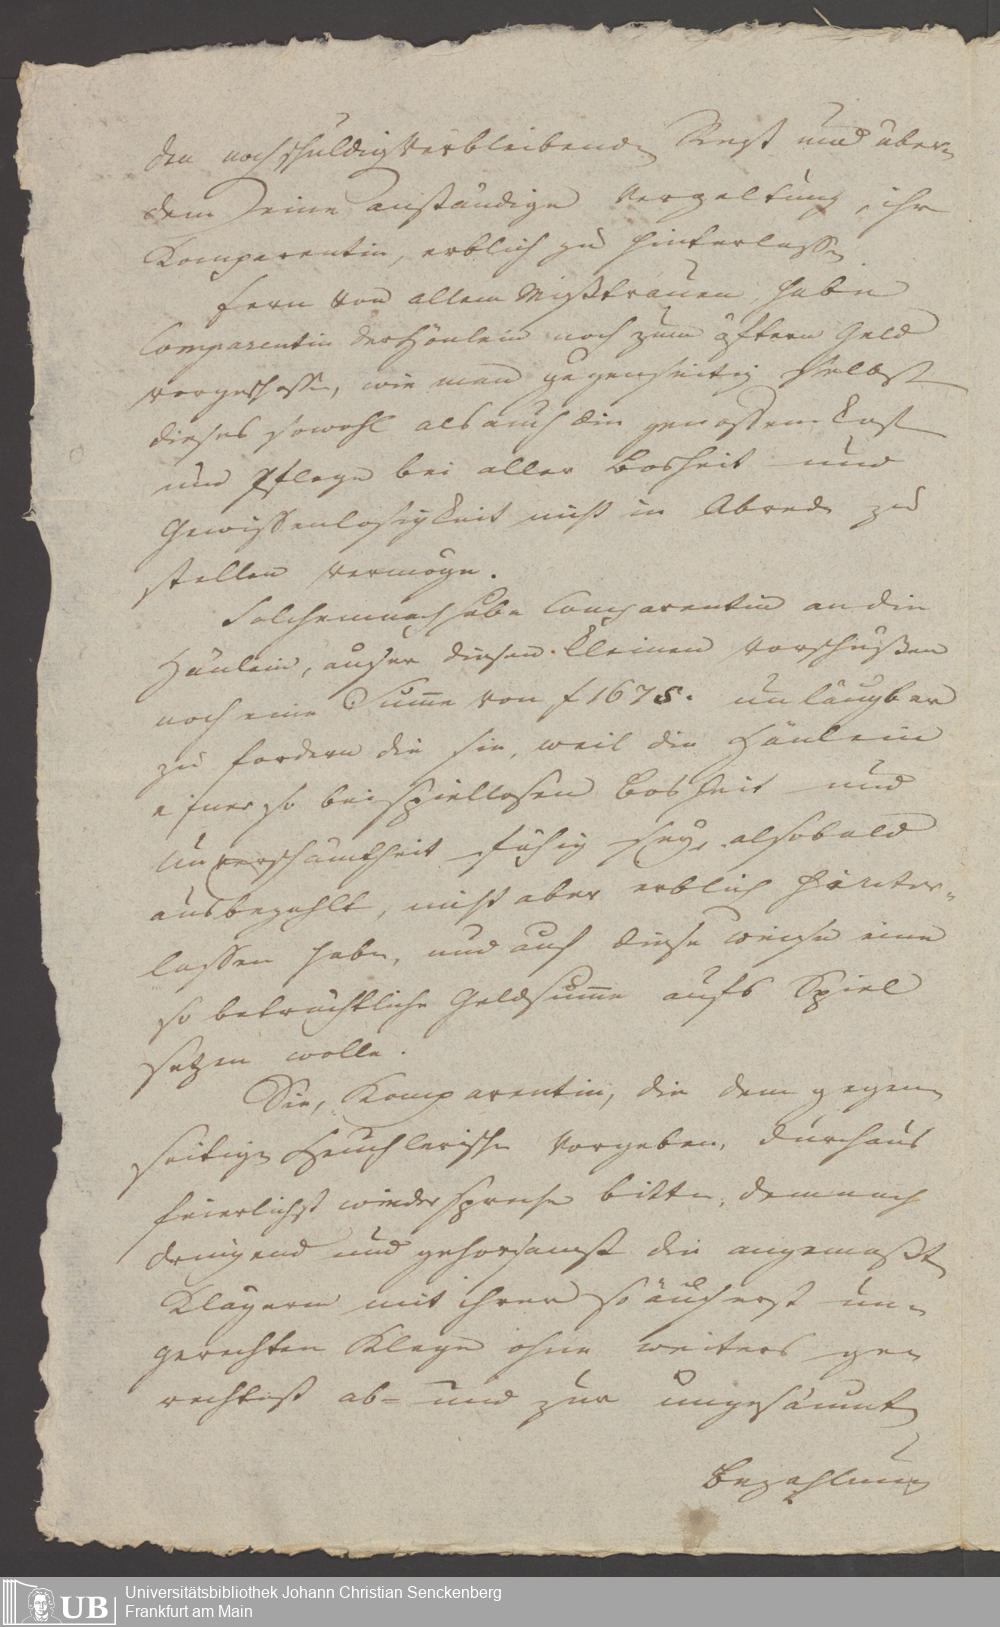 den noch schuldig verbleibenden Rest und über
dem eine anständige Vergeltung, ihr
Komparentin, erblich zu hinterlassen
fern von allem Mißtrauen habe
Comparentin der Häulein noch zum öftern Geld
vorgeschossen, wie man gegenseitig selbst
dieses sowohl als auch die genossene Kost
und Pflege bei aller Bosheit und
Gewissenlosigkeit nicht in Abrede zu
stellen vermöge.
Solchemnach habe Comparentin an die
Häulein, außer diesen kleinen Vorschüßen
noch eine Summe von f 1675. unläugbar
zu fordern die sie, weil die Häulein
einer so beispiellosen Bosheit und
Unverschämtheit fähig sey, alsobald
ausbezahlt, nicht aber erblich hinter-
lassen haben, und auf diese weise eine
so beträchtliche Geldsumme aufs Spiel
setzen wolle.
Sie, Komparentin, die dem gegen
seitigen Heuchlerischen Vorgeben, durchaus
feierlichst wiederspreche bitte, demnach
dringend und gehorsamst die angemaßte
Klägerin mit ihrer so äußerst un-
gerechten Klage ohne weiters ge
rechtest ab- und zur ungesäumten
Bezahlung
UB Universitätsbibliothek Johann Christian Senckenberg
Frankfurt am Main